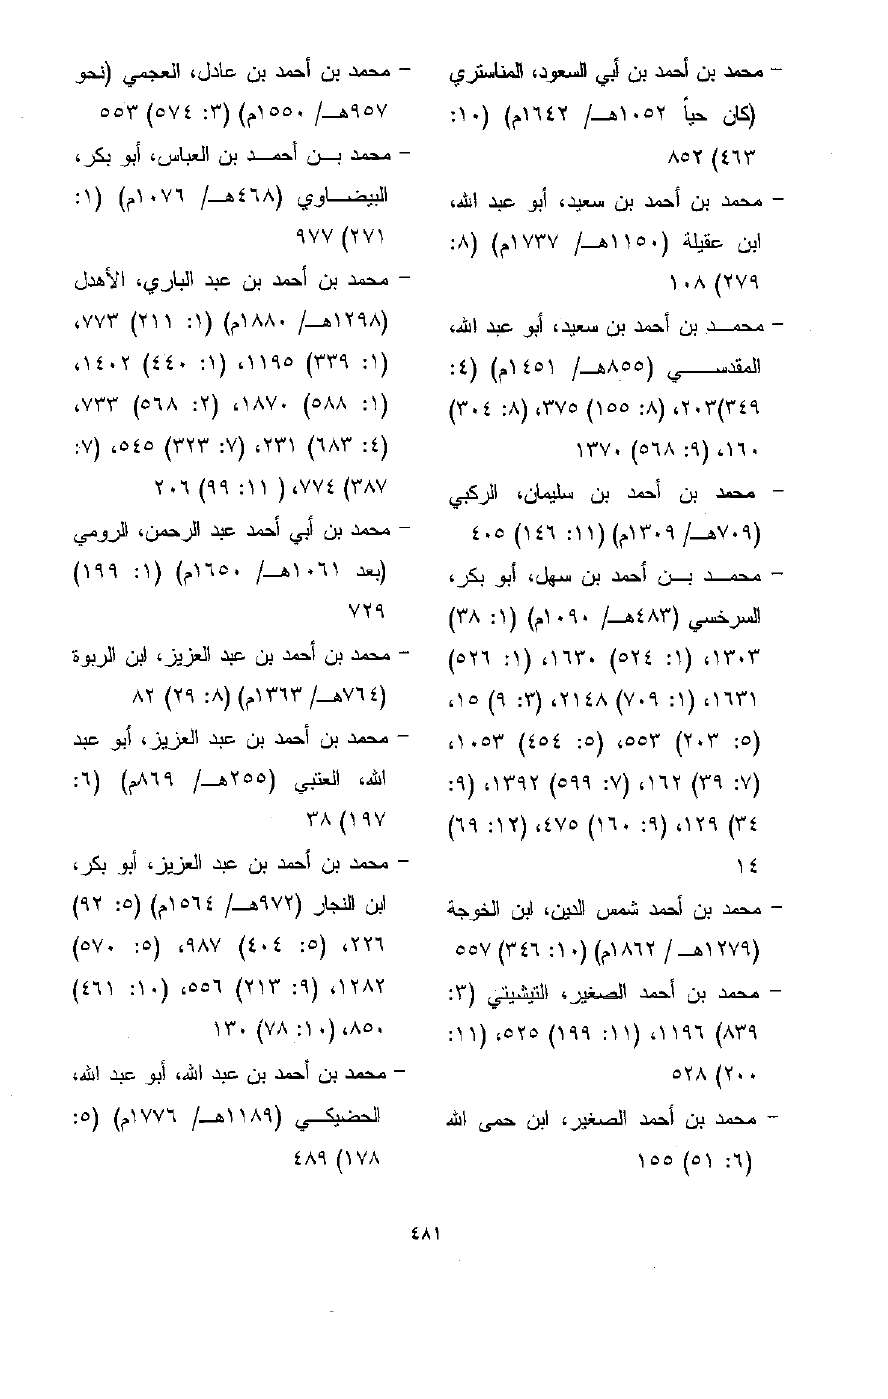 – محمد بن أحمد بن أبي السعود، المناستري
(كان حياً ١٠٥٢هـ/ ١٦٤٢م) (١٠:
٤٦٣) ٨٥٢
– محمد بن أحمد بن سعيد، أبو عبد الله،
ابن عقيلة (١١٥٠هـ/ ١٧٣٧م) (٨:
٢٧٩) ١٠٨
– محمد بن أحمد بن سعيد، أبو عبد الله،
المقدسي (٨٥٥هـ/ ١٤٥١م) (٤:
٣٤٩)٢٠٣، (٨: ١٥٥) ٣٧٥، (٨: ٣٠٤)
١٦٠، (٩: ٥٦٨) ١٣٧٠
– محمد بن أحمد بن سليمان، الركبي
(٧٠٩هـ/ ١٣٠٩م) (١١: ١٤٦) ٤٠٥
– محمد بن أحمد بن سهل، أبو بكر،
السرخسي (٤٨٣هـ/ ١٠٩٠م) (١: ٣٨)
١٣٠٣، (١: ٥٢٤) ١٦٣٠، (١: ٥٢٦)
١٦٣١، (١: ٧٠٩) ٢١٤٨، (٣: ٩) ١٥،
(٥: ٢٠٣) ٥٥٣، (٥: ٤٥٤) ١٠٥٣،
(٧: ٣٩) ١٦٢، (٧: ٥٩٩) ١٣٩٢، (٩:
٣٤) ١٢٩، (٩: ١٦٠) ٤٧٥، (١٢: ٦٩)
١٤
– محمد بن أحمد شمس الدين، ابن الخوجة
(١٢٧٩هـ/ ١٨٦٢م) (١٠: ٣٤٦) ٥٥٧
– محمد بن أحمد الصغير، التيشيتي (٣:
٨٣٩) ١١٩٦، (١١: ١٩٩) ٥٢٥، (١١:
٢٠٠) ٥٢٨
– محمد بن أحمد الصغير، ابن حمى الله
(٦: ٥١) ١٥٥
– محمد بن أحمد بن عادل، العجمي (نحو
٩٥٧هـ/ ١٥٥٠م) (٣: ٥٧٤) ٥٥٣
– محمد بن أحمد بن العباس، أبو بكر،
البيضاوي (٤٦٨هـ/ ١٠٧٦م) (١:
٢٧١) ٩٧٧
– محمد بن أحمد بن عبد الباري، الأهدل
(١٢٩٨هـ/ ١٨٨٠م) (١: ٢١١) ٧٧٣،
(١: ٣٣٩) ١١٩٥، (١: ٤٤٠) ١٤٠٢،
(١: ٥٨٨) ١٨٧٠، (٢: ٥٦٨) ٧٣٣،
(٤: ٦٨٣) ٢٣١، (٧: ٣٢٣) ٥٤٥، (٧:
٣٨٧) ٧٧٤، ( ١١: ٩٩) ٢٠٦
– محمد بن أبي أحمد عبد الرحمن، الرومي
(بعد ١٠٦١هـ/ ١٦٥٠م) (١: ١٩٩)
٧٢٩
– محمد بن أحمد بن عبد العزيز، ابن الربوة
(٧٦٤هـ/ ١٣٦٣م) (٨: ٢٩) ٨٢
– محمد بن أحمد بن عبد العزيز، أبو عبد
الله، العتبي (٢٥٥هـ/ ٨٦٩م) (٦:
١٩٧) ٣٨
– محمد بن أحمد بن عبد العزيز، أبو بكر،
ابن النجار (٩٧٢هـ/ ١٥٦٤م) (٥: ٩٢)
٢٢٦، (٥: ٤٠٤) ٩٨٧، (٥: ٥٧٠)
١٢٨٢، (٩: ٢١٣) ٥٥٦، (١٠: ٤٦١)
٨٥٠، (١٠: ٧٨) ١٣٠
– محمد بن أحمد بن عبد الله، أبو عبد الله،
الحضيكي (١١٨٩هـ/ ١٧٧٦م) (٥:
١٧٨) ٤٨٩
٤٨١